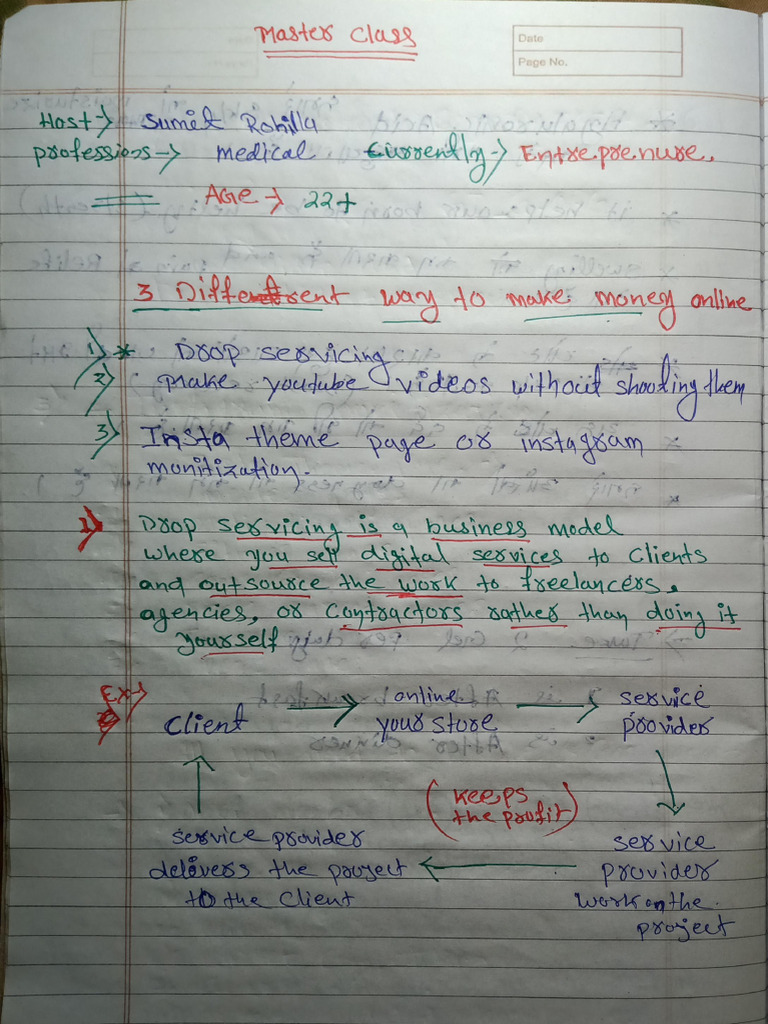 Master Class
Date
Page No.
Host → Sumit Rohilla
professions → medical Currently → Entreprenure.
Age → 22+
3 Different way to make money online
1) * Drop servicing
2) Make youtube videos without shooting them
3) Insta theme page or instagram
monitization.
1) Drop servicing is a business model
where you sell digital services to clients
and outsource the work to freelancers,
agencies, or contractors rather than doing it
yourself
Ex →
Client → online your store → service provider
(keeps the profit)
service provider work on the project
service provider delivers the project to the client